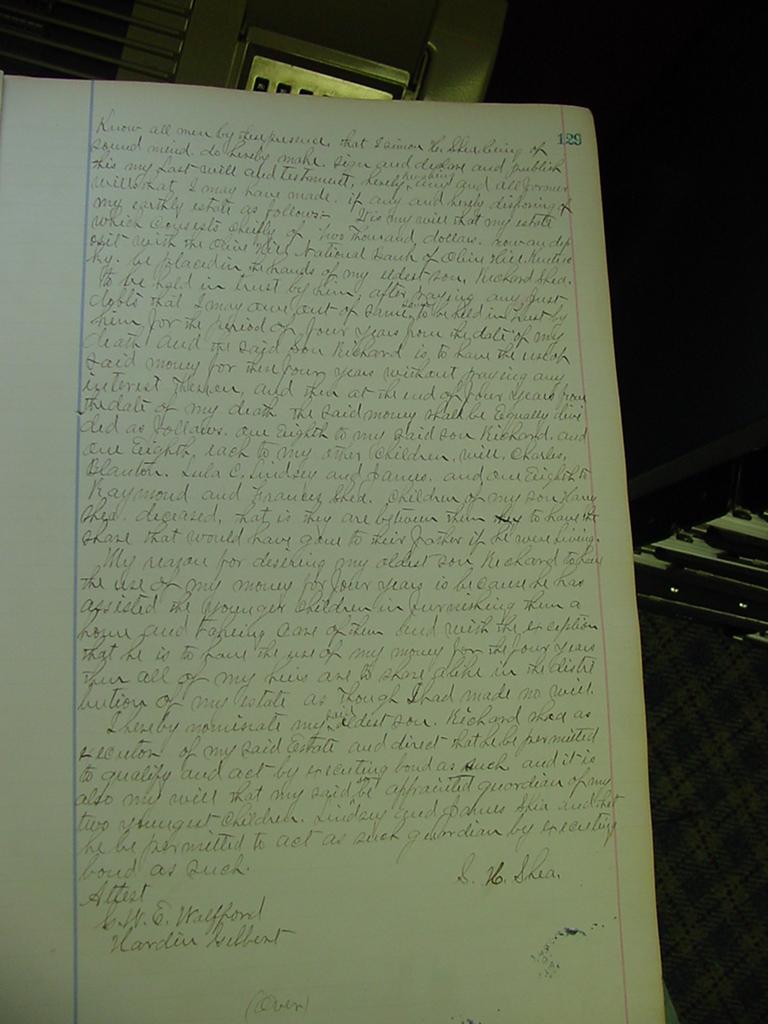 129
Know all men by these presence, that I Simon H. Shea being of
sound mind. do hereby make. sign and declare and publish
this my last will and testament, hereby revoking any and all former
wills that I may have made. if any and hereby disposing of
my earthly estate as follows- It is my will that my estate
which consists chiefly of Two Thousand dollars. now on dep
osit with the Olive Hill National Bank of Olive Hill. Kentuc
ky. be placed in the hands of my eldest son, Richard Shea.
to be held in trust by him, after paying any just
debts that I may owe out of same, to be held in trust by
him for the period of four years from the date of my
death and the said son Richard is to have the use of
said money for the four years without paying any
interest thereon, and then at the end of four years from
the date of my death the said money shall be Equally divi
ded as follows. one Eighth to my said son Richard. and
one Eighth, each to my other children, will, Charles,
Blanton. Lula C, Lindsey and James. and one Eighth to
Raymond and Frances Shea. Children of my son Harry
Shea. deceased, that is they are between them to have the
share that would have gone to their father if he were living.
My reason for desiring my oldest son, Richard to have
the use of my money for four years is because he has
assisted the younger children in furnishing them a
home and takeing care of them and with the exception
that he is to have the use of my money for the four years
then all of my heirs are to share alike in the distri
bution of my estate as though I had made no will.
I hereby nominate my said eldest son. Richard Shea as
executor of my said Estate and direct that he be permitted
to qualify and act by executing bond as such and it is
also my will that my said son be appointed guardian of my
two youngest children. Lindsey and James Shea and that
he be permitted to act as such guardian by executing
bond as such.
S. H. Shea.
Attest
G. W. E. Wolfford
Hardin Gilbert
(Over)